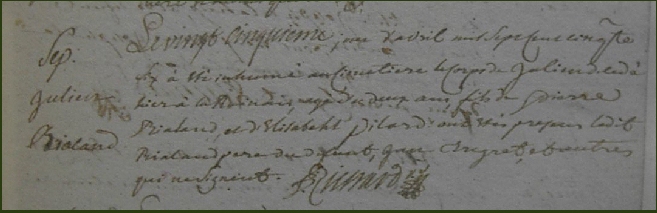 Sep.
Julien
Rialand
Le vingt cinquieme jour d'avril mil sept cent cinqte
six à été inhumé au cimetiere le corps de Julien decedé
hier à la agé de deux ans, fils de pierre
Rialand, et d'Elisabeth pilard ont été presens ledit
Rialand pere du , jean et autres
qui ne signent. Richard